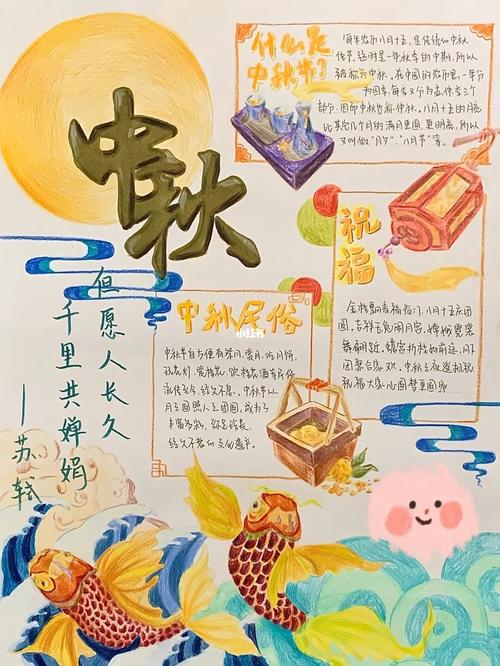 中秋
但愿人长久
千里共婵娟
——苏轼
什么是
中秋节？
每年农历八月十五，是传统的中秋
佳节。这时是一年秋季的中期，所以
被称为中秋。在中国的农历里，一年分
为四季，每季又分为孟、仲、季三个
部分，因而中秋也称仲秋。八月十五的月亮
比其他几个月的满月更圆，更明亮，所以
又叫做“月夕”，“八月节”等。
祝福
金桂飘香福临门，八月十五庆团
圆。吉祥玉兔闹月宫，嫦娥
舞翩跹。
祝福大家心圆梦更圆
中秋民俗
小红书
中秋节自古便有祭月、赏月、吃月饼、
玩花灯、赏桂花、饮桂花酒等民俗
流传至今，经久不息。中秋节以
月之圆照人之团圆，
丰富多彩、弥足珍贵
经久不衰的文化遗产。